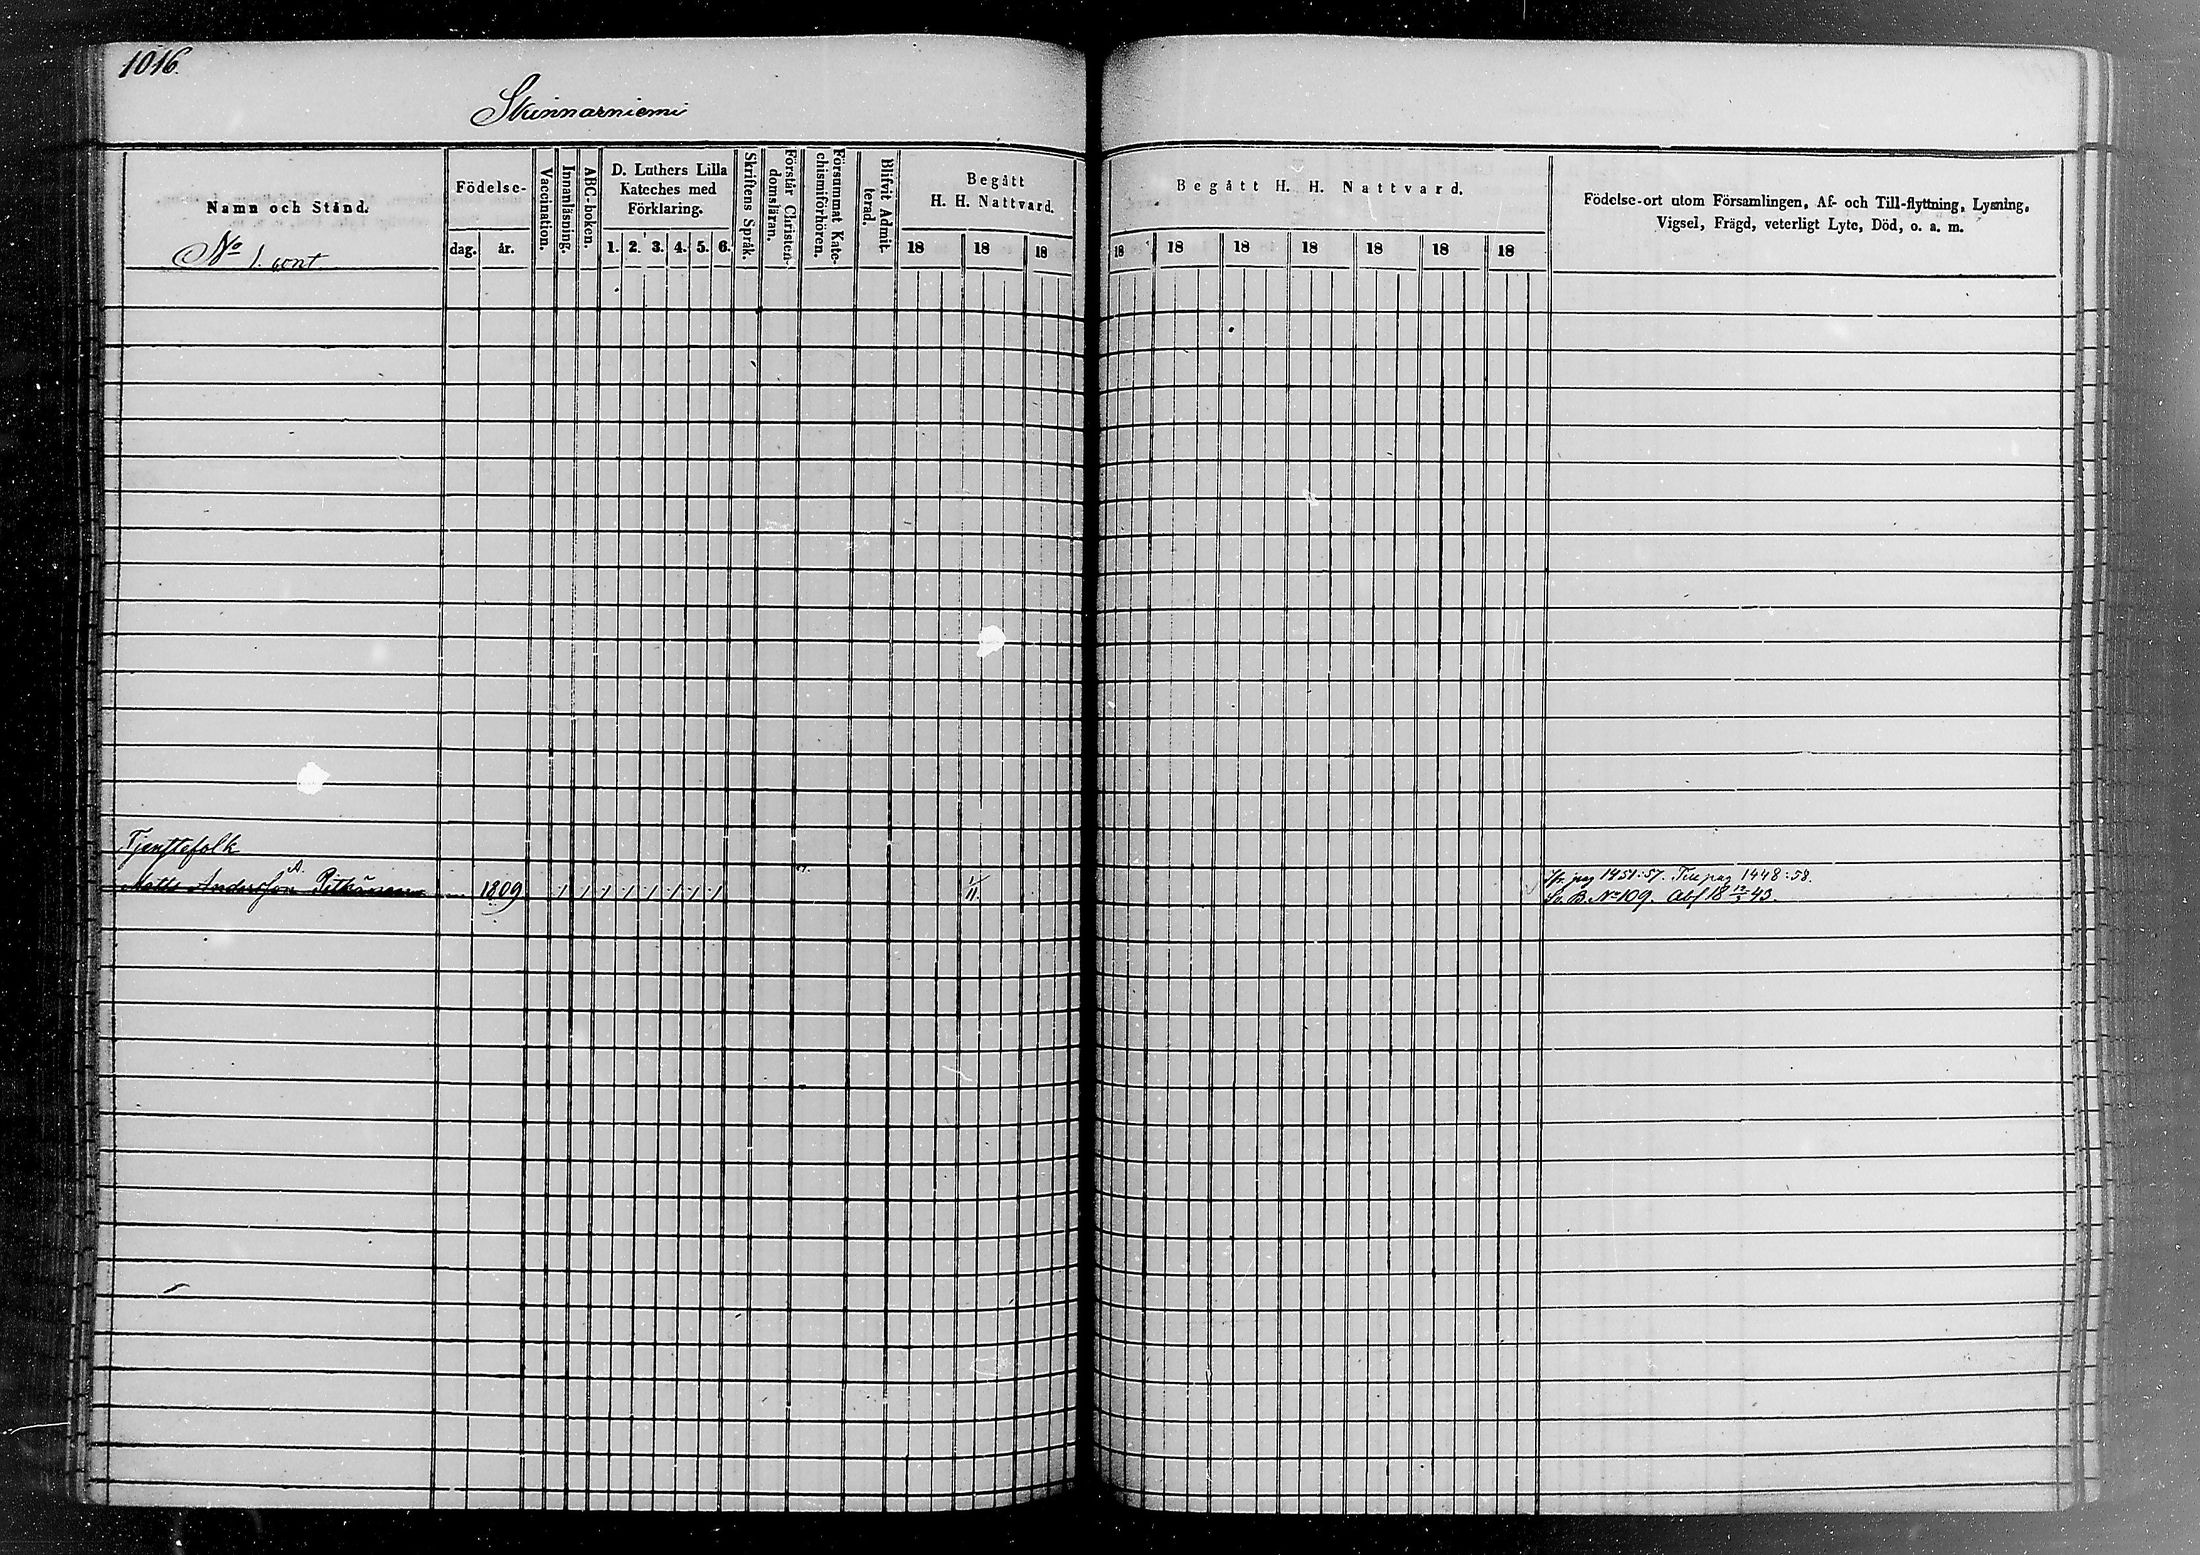 1016.
Skinnarniemi
Namn och Stånd.
No 1. cont
Födelse-
dag. år.
Vaccination.
Innanläsning.
ABC-boken.
D. Luthers Lilla
Kateches med
Förklaring.
1. 2. 3. 4. 5. 6.
Skriftens Språk.
Förstår Christen-
domsläran.
Försummat Kate-
chismiförhören.
Blifvit Admit-
terad.
Begått
H. H. Nattvard.
18 18 18
Begått H. H. Nattvard.
18 18 18 18 18 18 18
Födelse-ort utom Församlingen, Af- och Till-flyttning, Lysning,
Vigsel, Frägd, veterligt Lyte, Död, o. a. m.
Tjenstefolk
A.
Matts Andersson Pitkänen 1809 / / / / / / / / 1/11.
Fr. pag 1451:57. Till pag 1448:58.
Se B. No 109. Abf 18 12/3 43.